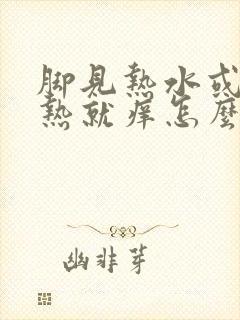 脚見熱水或
熱就痒怎麼
幽非芽